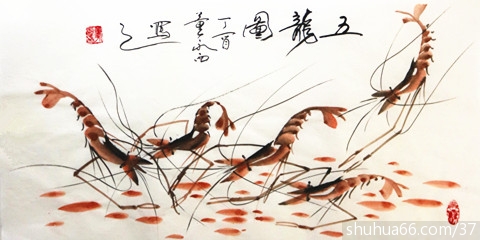 五龍圖
丁酉
董永西
写之
shuhua66.com/37